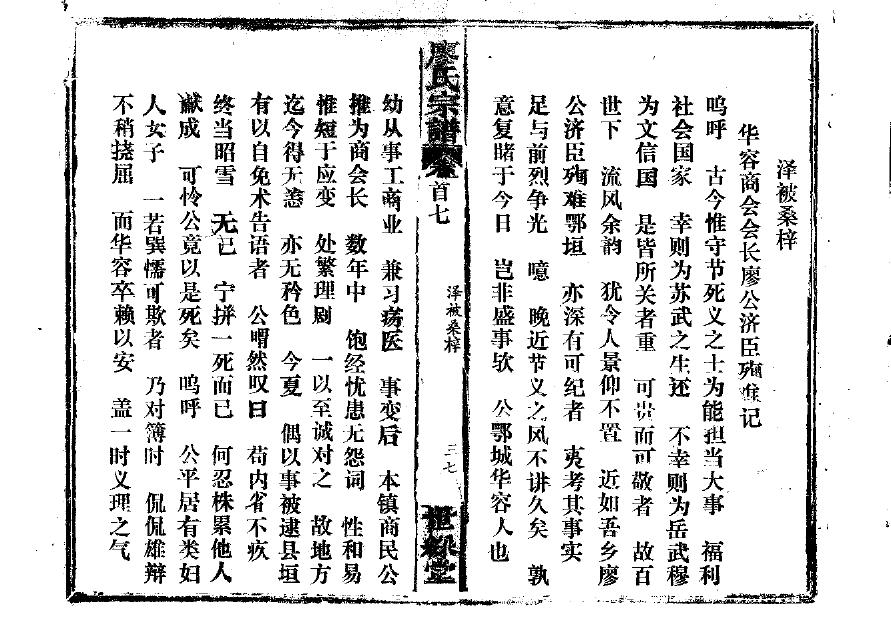 泽被桑梓
华容商会会长廖公济臣殉难记
呜呼 古今惟守节死义之士为能担当大事 福利
社会国家 幸则为苏武之生还 不幸则为岳武穆
为文信国 是皆所关者重 可贵而可敬者 故百
世下 流风余韵 犹令人景仰不置 近如吾乡廖
公济臣殉难鄂垣 亦深有可纪者 夷考其事实
足与前烈争光 噫 晚近节义之风不讲久矣 孰
意复睹于今日 岂非盛事欤 公鄂城华容人也
廖氏宗谱卷首七 泽被桑梓 三七 世䌽堂
幼从事工商业 兼习疡医 事变后 本镇商民公
推为商会长 数年中 饱经忧患无怨词 性和易
惟短于应变 处繁理剧 一以至诚对之 故地方
迄今得无恙 亦无矜色 今夏 偶以事被逮县垣
有以自免术告语者 公喟然叹曰 苟内省不疚
终当昭雪 无已 宁拼一死而已 何忍株累他人
谳成 可怜公竟以是死矣 呜呼 公平居有类妇
人女子 一若巽懦可欺者 乃对簿时 侃侃雄辩
不稍挠屈 而华容卒赖以安 盖一时义理之气